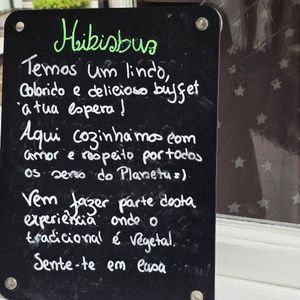 Hibisbus
Temos um lindo,
Colorido e delicioso buffet
á tua espera!
Aqui cozinhamos com
amor e respeito por todos
os seres do Planeta =)
Vem fazer parte desta
experiência onde o
tradicional é vegetal.
Sente-te em casa